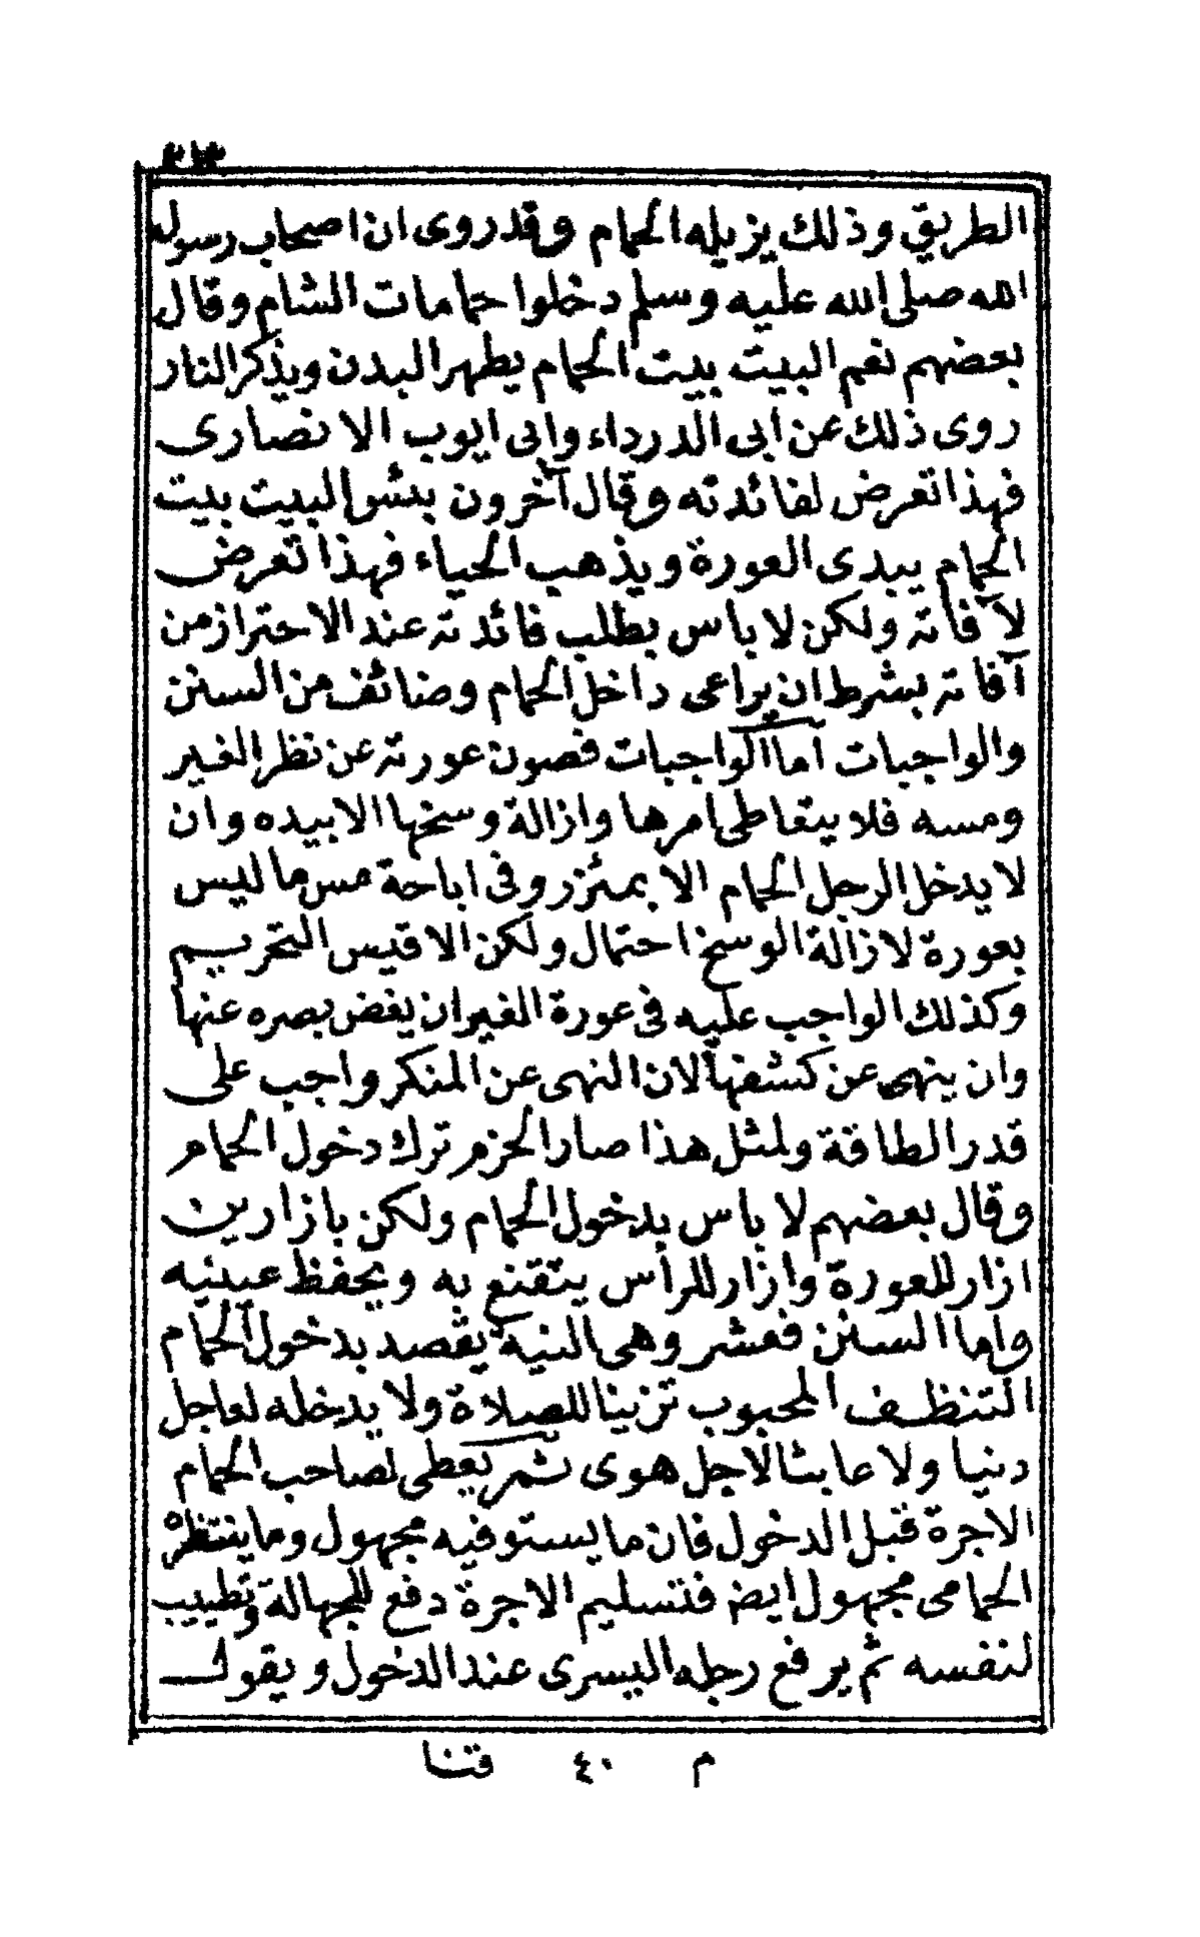 ٣١٣
الطريق وذلك يزيله الحمام وقد روى ان اصحاب رسول
الله صلى الله عليه وسلم دخلوا حمامات الشام وقال
بعضهم نعم البيت بيت الحمام يطهر البدن ويذكر النار
روى ذلك عن ابى الدرداء وابى ايوب الانصارى
فهذا تعرض لفائدته وقال آخرون بئس البيت بيت
الحمام يبدى العورة ويذهب الحياء فهذا تعرض
لآفاته ولكن لا باس بطلب فائدته عند الاحتراز من
آفاته بشرط ان يراعى داخل الحمام وضائف من السنن
والواجبات اما الواجبات فصون عورته عن نظر الغير
ومسه فلا يتعاطى امرها وازالة وسخها الا بيده وان
لا يدخل الرجل الحمام الا بمئزر وفى اباحة مس ما ليس
بعورة لازالة الوسخ احتمال ولكن الاقيس التحريم
وكذلك الواجب عليه فى عورة الغير ان يغض بصره عنها
وان ينهى عن كشفها لان النهى عن المنكر واجب على
قدر الطاقة ولمثل هذا صار الحزم ترك دخول الحمام
وقال بعضهم لا باس بدخول الحمام ولكن بازارين
ازار للعورة وازار للرأس يتقنع به ويحفظ عينيه
واما السنن فعشر وهى النية يقصد بدخول الحمام
التنظف المحبوب تزينا للصلاة ولا يدخله لعاجل
دنيا ولا عابثا لاجل هوى ثم يعطى لصاحب الحمام
الاجرة قبل الدخول فان ما يستوفيه مجهول وما ينتظره
الحمامى مجهول ايض فتسليم الاجرة دفع للجهالة وتطييب
لنفسه ثم يرفع رجله اليسرى عند الدخول ويقول
م ٤٠ قتنا